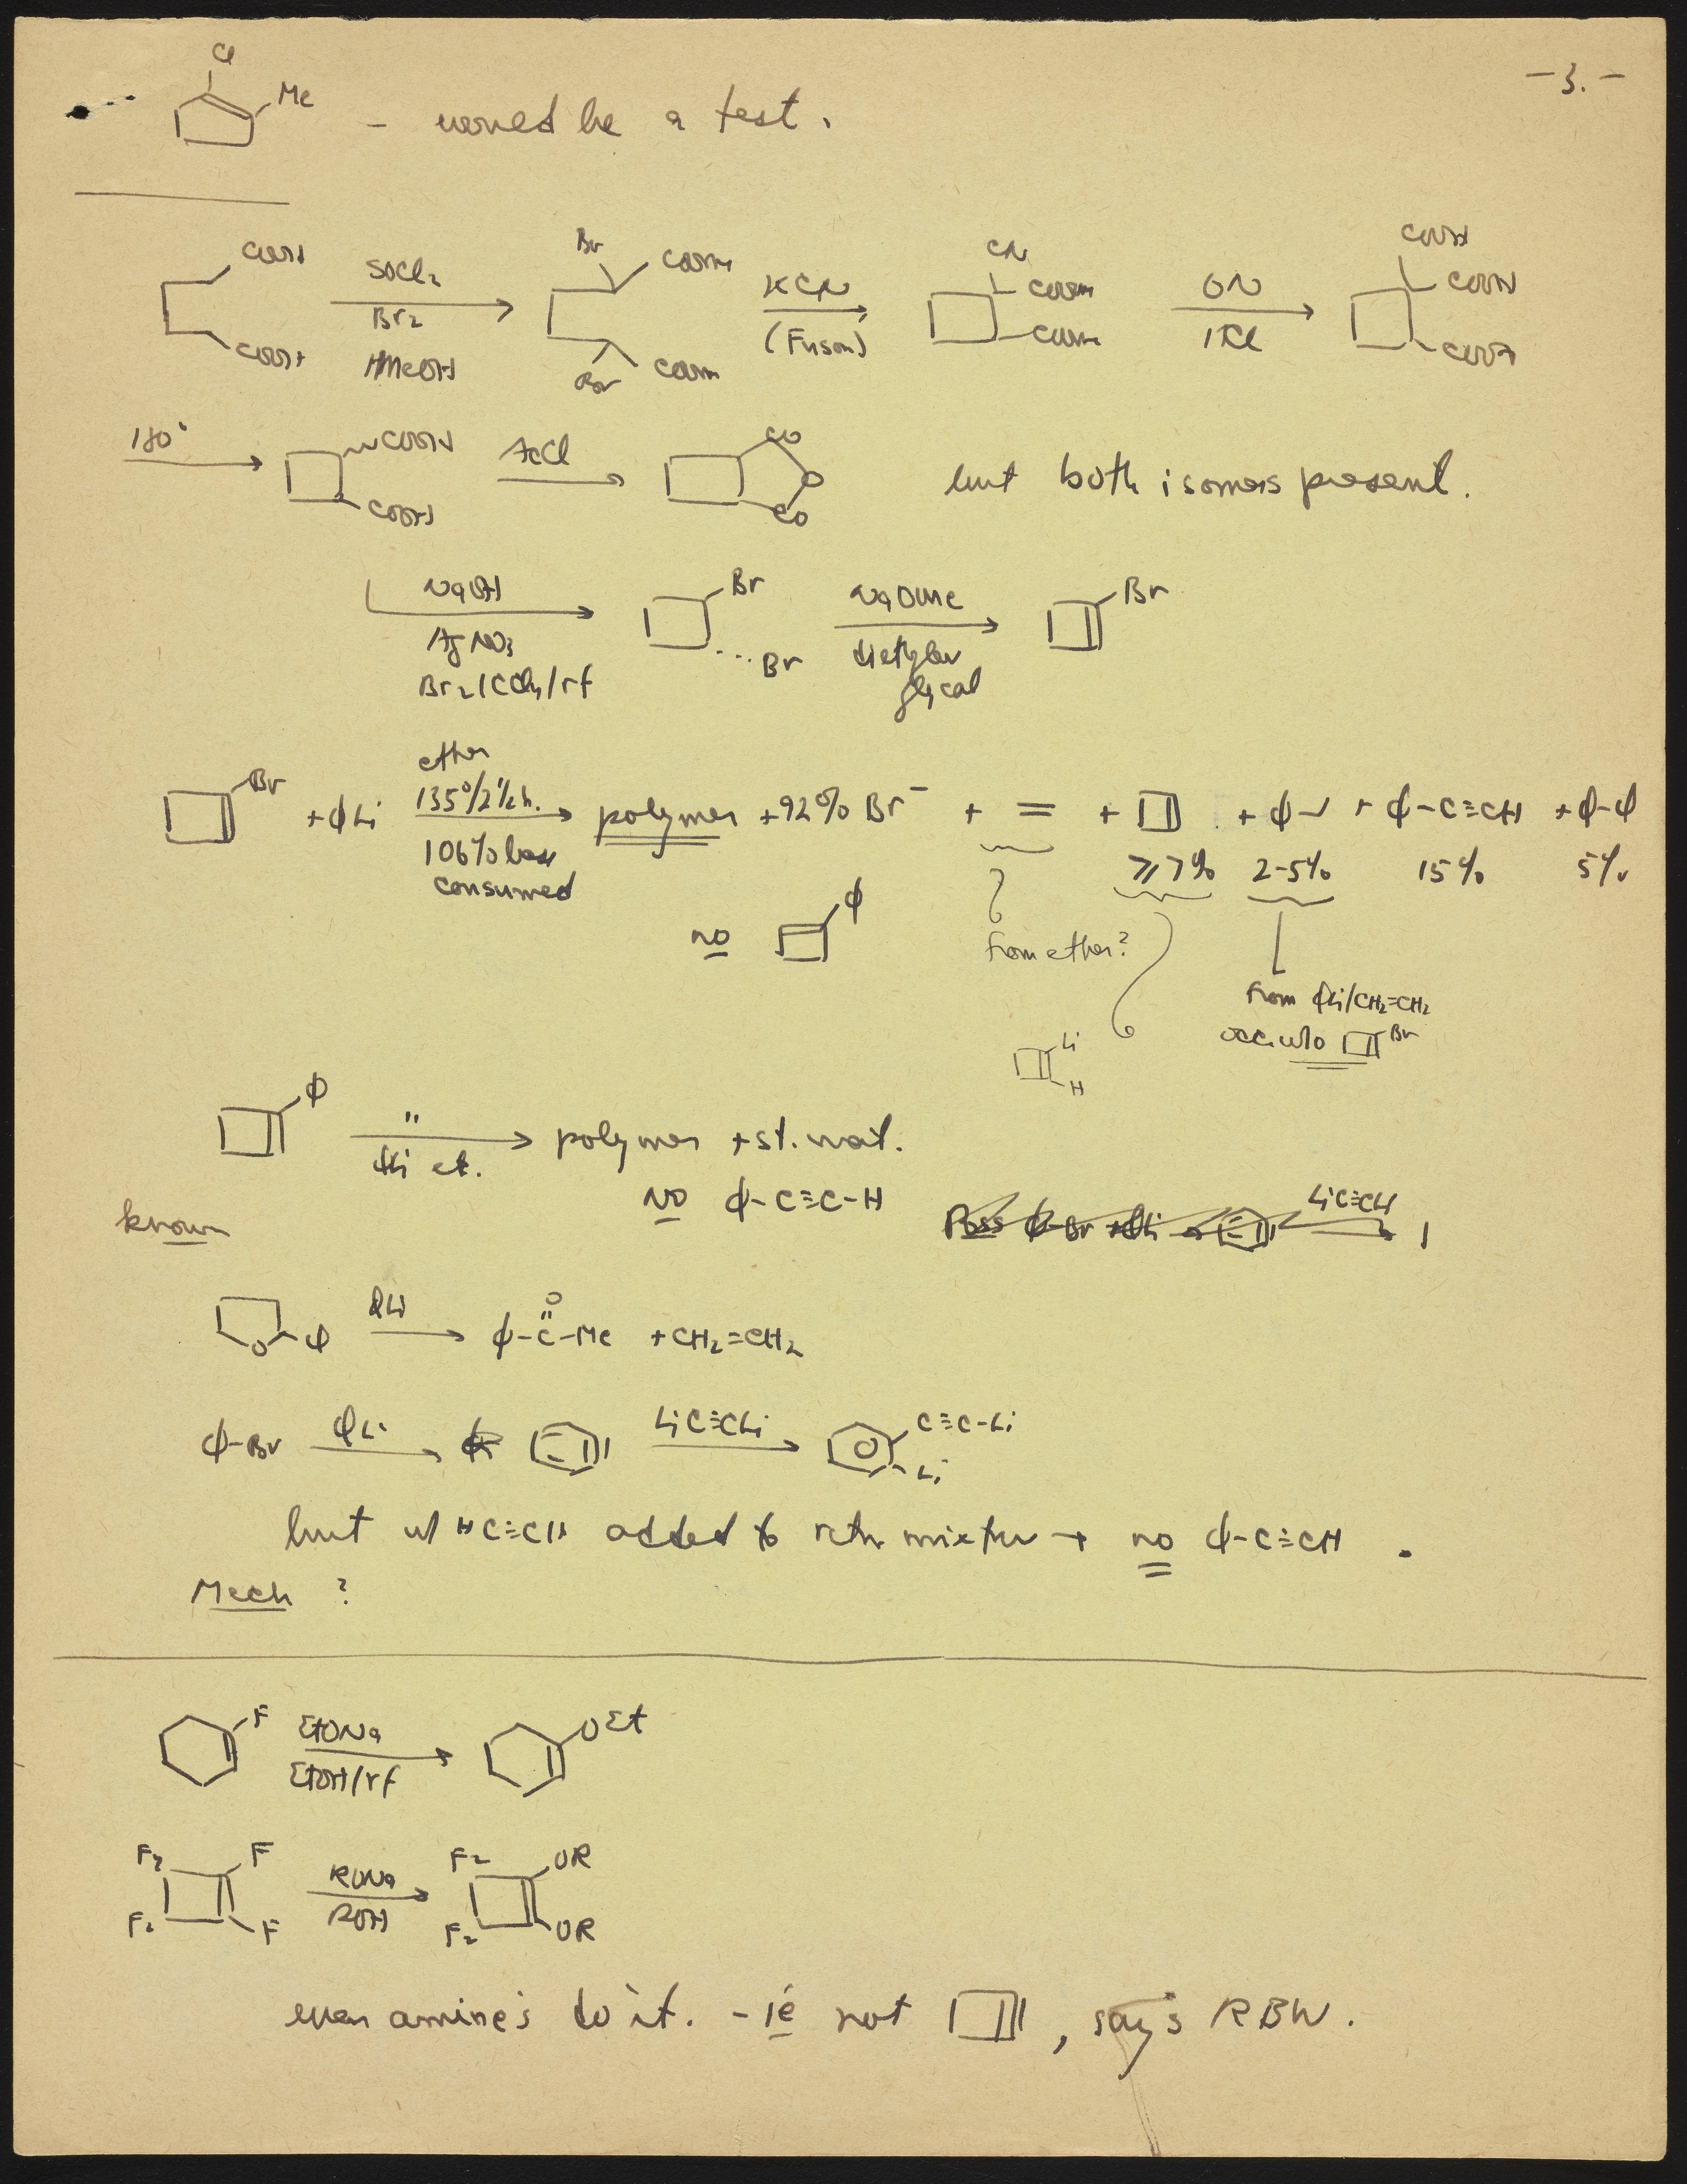 -3.-
Cl
Me
- would be a test.
COOH SOCl2 Br COOMe KCN CN COOMe OH COOH COOH
COOH Br2 MeOH Br COOMe (Fuson) COOMe HCl COOH
180° COOH AcCl CO O but both isomers present.
COOH CO
NaOH Br NaOMe Br
AgNO3 Br diethylene
Br2/CCl4/rf glycol
ether
Br + ϕLi 135°/2½h. polymer + 92% Br⁻ + = + + ϕ + ϕ-C≡CH + ϕ-ϕ
106% base ≥7% 2-5% 15% 5%
consumed
no ϕ from ether?
from ϕLi/CH2=CH2
occ. w/o Br
Li
H
ϕ " polymer + st. mat.
ϕLi et.
no ϕ-C≡C-H Poss ϕ-Br + ϕLi → LiC≡CLi
known
O ϕ ϕLi ϕ-C-Me + CH2=CH2
O
ϕ-Br ϕLi LiC≡CLi C≡C-Li
Li
but w/ HC≡CH added to rctn mixture → no ϕ-C≡CH .
Mech ?
F EtONa OEt
EtOH/rf
F2 F RONa F2 OR
F2 F ROH F2 OR
even amines do it. - ie not , says RBW.